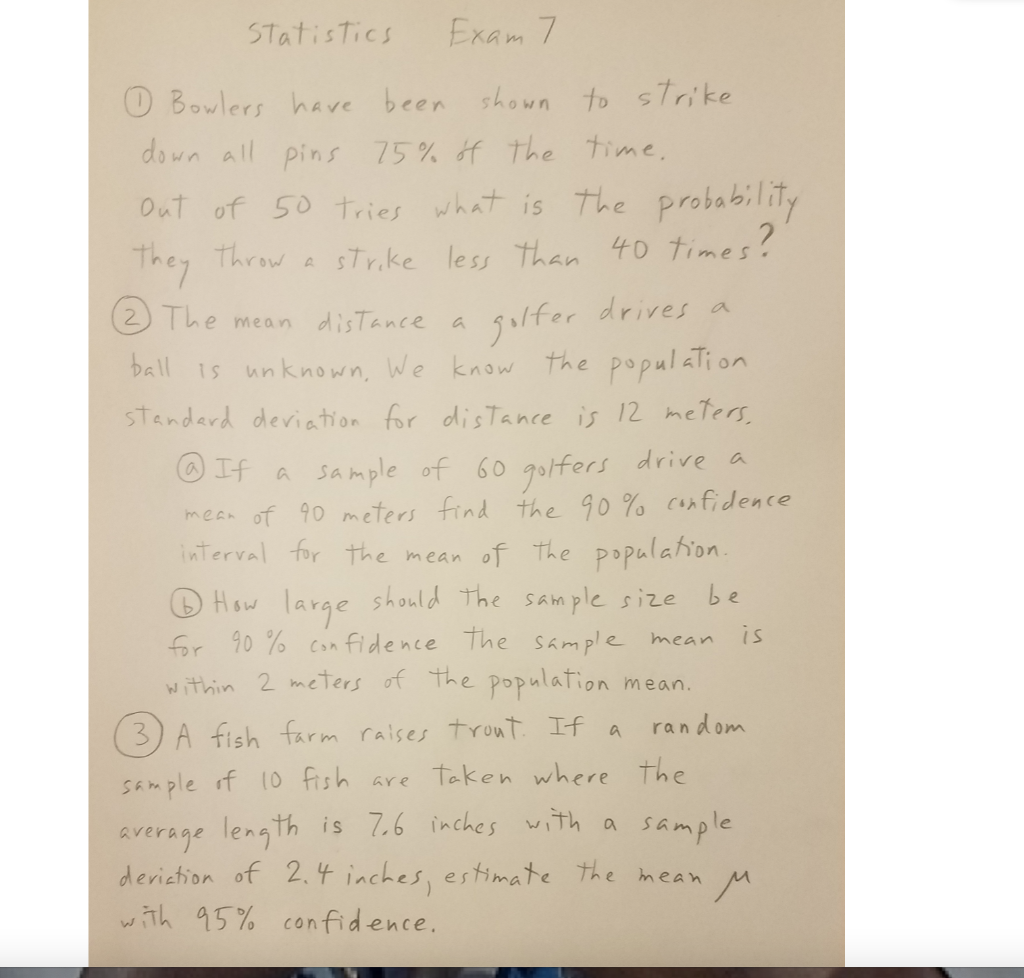 Statistics Exam 7
① Bowlers have been shown to strike
down all pins 75% of the time.
Out of 50 tries what is the probability
they throw a strike less than 40 times?
② The mean distance a golfer drives a
ball is unknown. We know the population
standard deviation for distance is 12 meters.
ⓐ If a sample of 60 golfers drive a
mean of 90 meters find the 90% confidence
interval for the mean of the population.
ⓑ How large should the sample size be
for 90% confidence the sample mean is
within 2 meters of the population mean.
③ A fish farm raises trout. If a random
sample of 10 fish are taken where the
average length is 7.6 inches with a sample
deviation of 2.4 inches, estimate the mean μ
with 95% confidence.